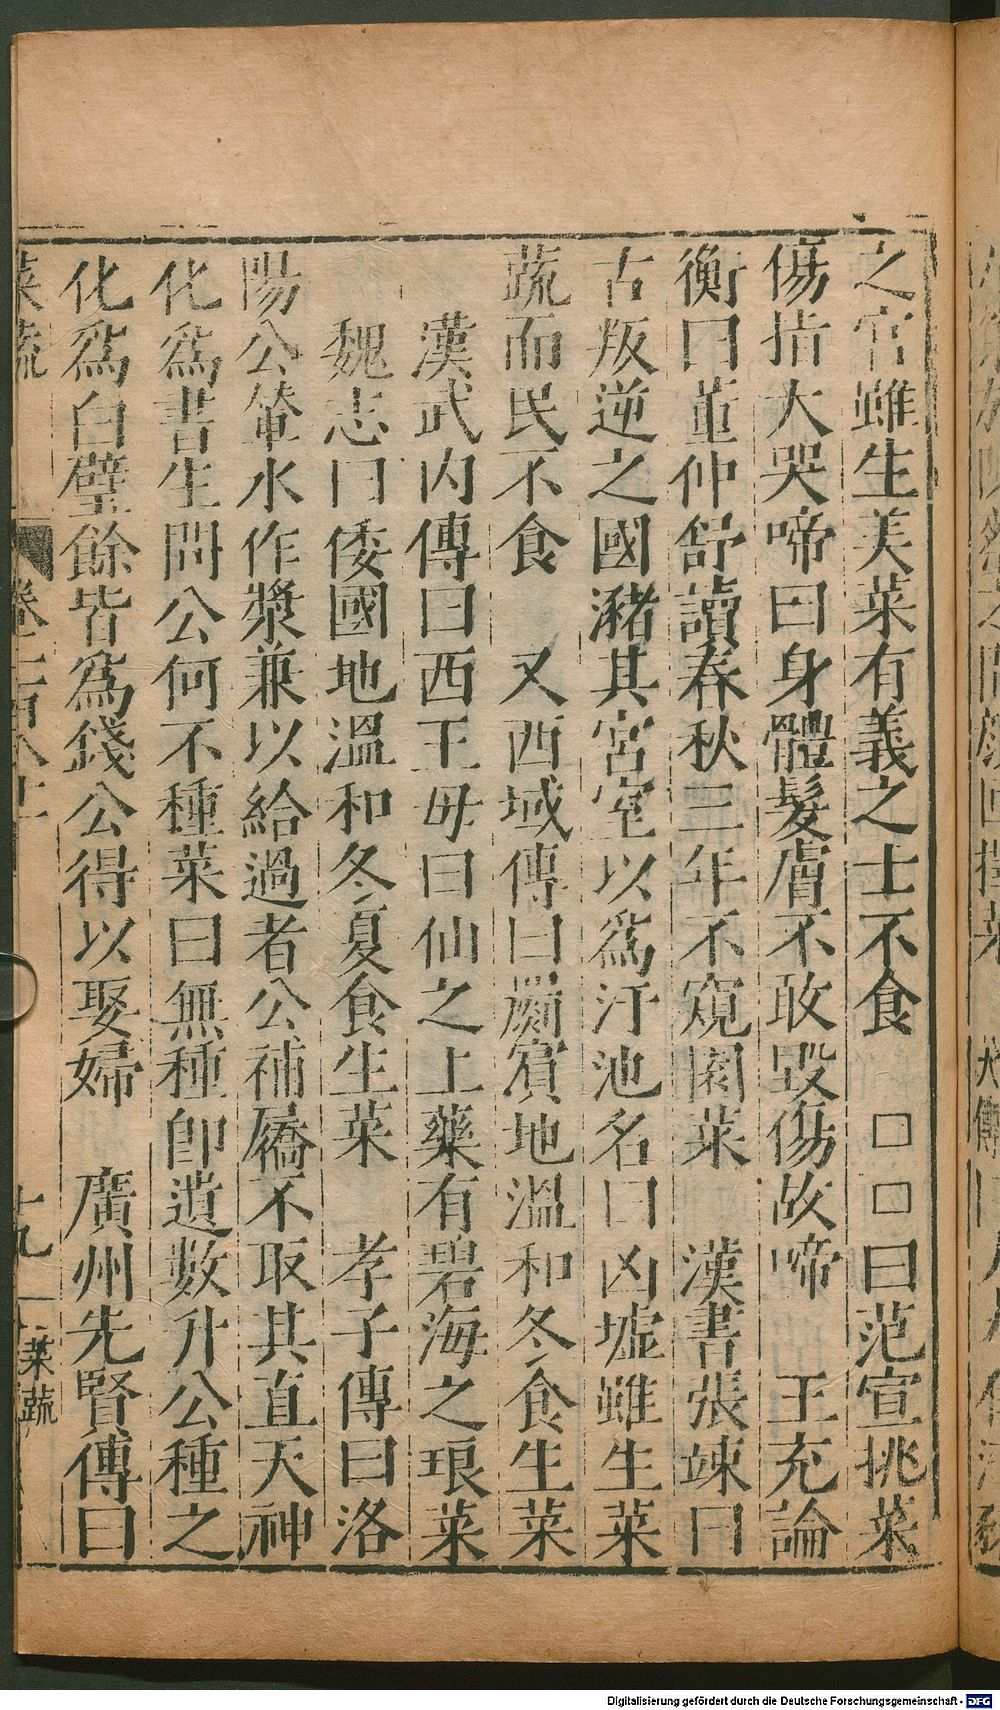 之官雖生美菜有義之士不食　□□曰范宣挑菜
傷指大哭啼曰身體髮膚不敢毀傷故啼　王充論
衡曰董仲舒讀春秋三年不窺園菜　漢書張竦曰
古叛逆之國瀦其宮室以爲汙池名曰凶墟雖生菜
蔬而民不食　又西域傳曰罽賓地溫和冬食生菜
漢武內傳曰西王母曰仙之上藥有碧海之琅菜
魏志曰倭國地溫和冬夏食生菜　孝子傳曰洛
陽公輦水作漿兼以給過者公補屩不取其直天神
化爲書生問公何不種菜曰無種卽遺數升公種之
化爲白璧餘皆爲錢公得以娶婦　廣州先賢傳曰
菜蔬　卷二百八十　十九　菜蔬
Digitalisierung gefördert durch die Deutsche Forschungsgemeinschaft - DFG